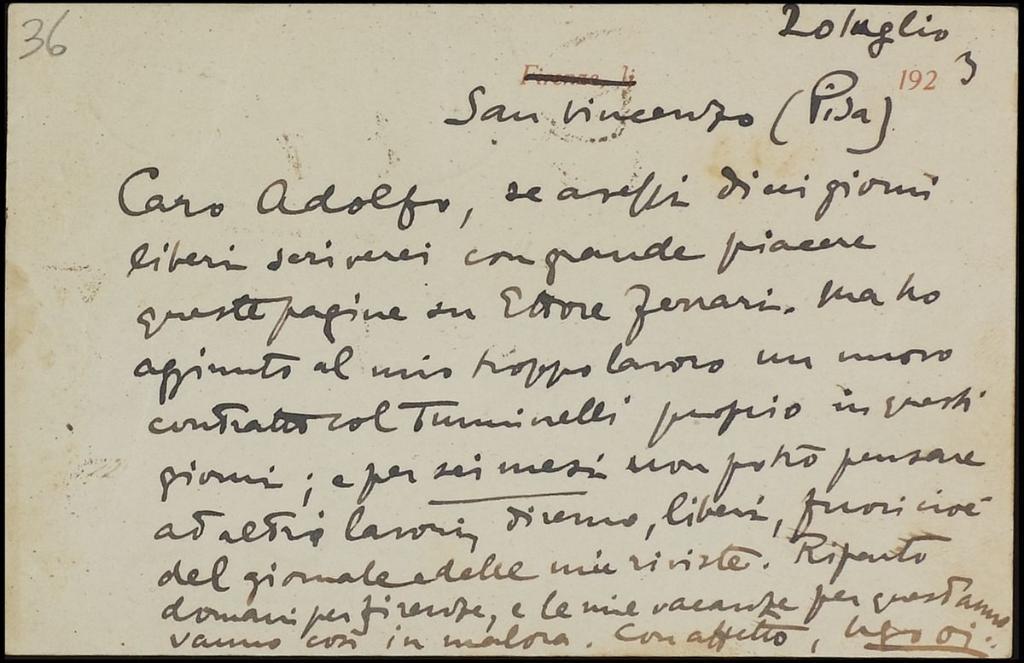 36
20 luglio
Firenze, li
1923
San Vincenzo (Pisa)
Caro Adolfo, se avessi dieci giorni
liberi scriverei con grande piacere
queste pagine su Ettore Ferrari. Ma ho
aggiunto al mio troppo lavoro un nuovo
contratto col Tumminelli proprio in questi
giorni; e per sei mesi non potrò pensare
ad altri lavori, diremo, liberi, fuori cioè
del giornale e delle mie riviste. Riparto
domani per Firenze, e le mie vacanze per quest'anno
vanno così in malora. Con affetto, Ugo Oj.